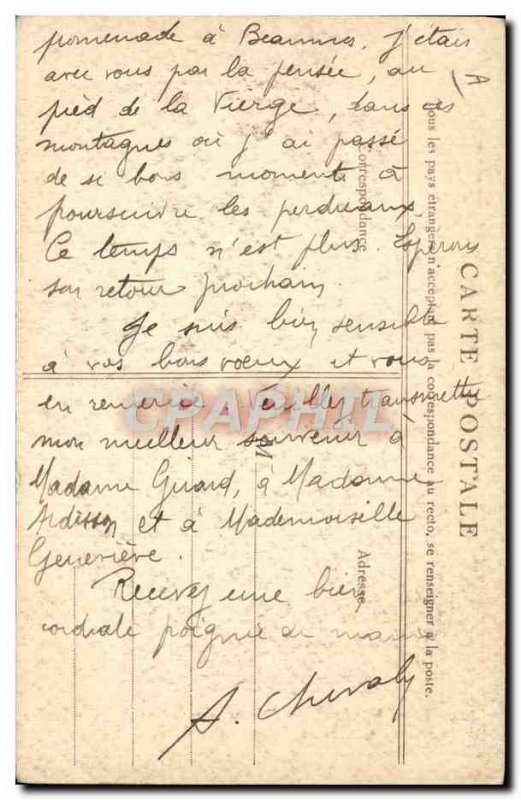 promenade à Beaumes. J'étais
avec vous par la pensée, au
pied de la Vierge, dans ces
montagnes où j'ai passé
de si bons moments à
poursuivre les perdreaux.
Ce temps n'est plus. Espérons
son retour prochain.
Je suis bien sensible
à vos bons vœux et vous
en remercie. Veuillez transmettre
mon meilleur souvenir à
Madame Girard, à Madame
Ardisson et à Mademoiselle
Geneviève.
Recevez une bien
cordiale poignée de mains
A.
CARTE POSTALE
Tous les pays étrangers n'acceptant pas la correspondance au recto, se renseigner à la poste.
Correspondance
Adresse
M
CPAPHIL